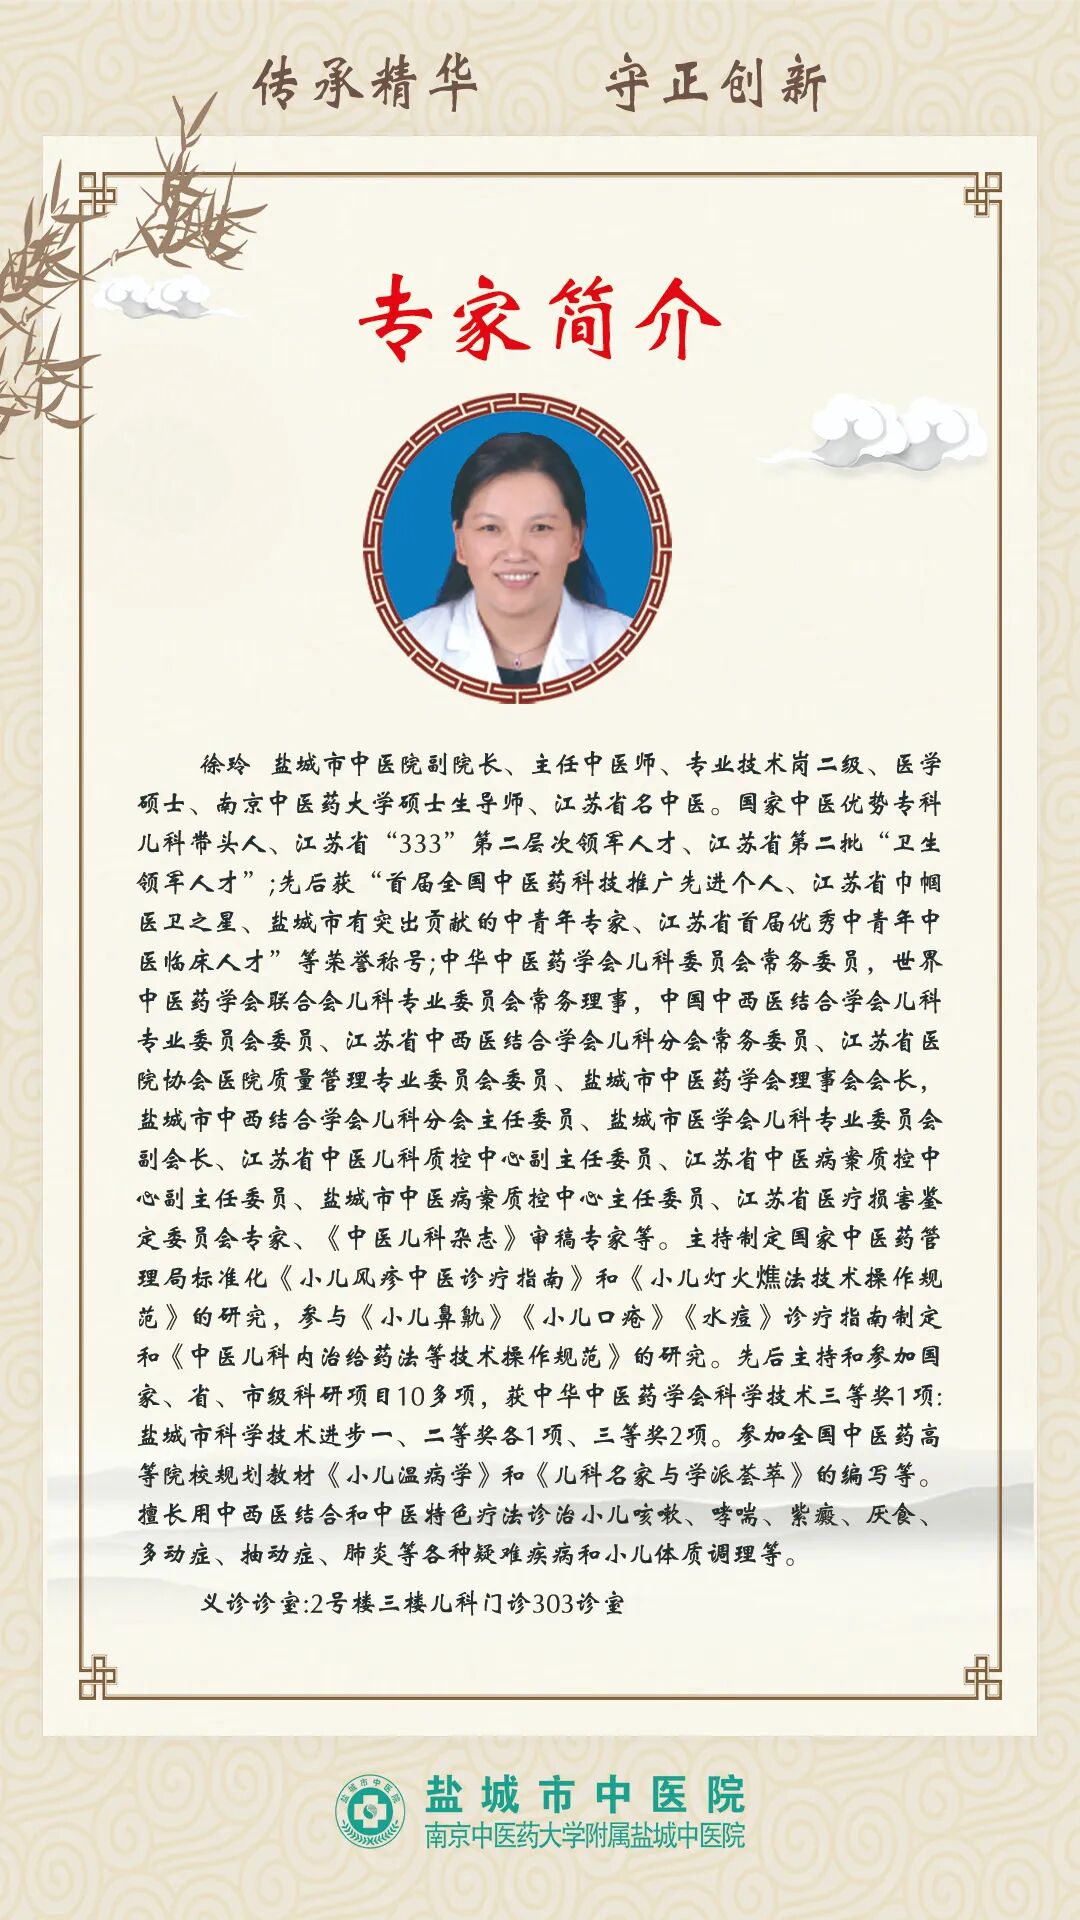 传承精华 守正创新
专家简介
徐玲 盐城市中医院副院长、主任中医师、专业技术岗二级、医学
硕士、南京中医药大学硕士生导师、江苏省名中医。国家中医优势专科
儿科带头人、江苏省“333”第二层次领军人才、江苏省第二批“卫生
领军人才”;先后获“首届全国中医药科技推广先进个人、江苏省巾帼
医卫之星、盐城市有突出贡献的中青年专家、江苏省首届优秀中青年中
医临床人才”等荣誉称号;中华中医药学会儿科委员会常务委员，世界
中医药学会联合会儿科专业委员会常务理事，中国中西医结合学会儿科
专业委员会委员、江苏省中西医结合学会儿科分会常务委员、江苏省医
院协会医院质量管理专业委员会委员、盐城市中医药学会理事会会长，
盐城市中西结合学会儿科分会主任委员、盐城市医学会儿科专业委员会
副会长、江苏省中医儿科质控中心副主任委员、江苏省中医病案质控中
心副主任委员、盐城市中医病案质控中心主任委员、江苏省医疗损害鉴
定委员会专家、《中医儿科杂志》审稿专家等。主持制定国家中医药管
理局标准化《小儿风疹中医诊疗指南》和《小儿灯火燋法技术操作规
范》的研究，参与《小儿鼻鼽》《小儿口疮》《水痘》诊疗指南制定
和《中医儿科内治给药法等技术操作规范》的研究。先后主持和参加国
家、省、市级科研项目10多项，获中华中医药学会科学技术三等奖1项:
盐城市科学技术进步一、二等奖各1项、三等奖2项。参加全国中医药高
等院校规划教材《小儿温病学》和《儿科名家与学派荟萃》的编写等。
擅长用中西医结合和中医特色疗法诊治小儿咳嗽、哮喘、紫癜、厌食、
多动症、抽动症、肺炎等各种疑难疾病和小儿体质调理等。
义诊诊室:2号楼三楼儿科门诊303诊室
盐城市中医院
盐城市中医院
南京中医药大学附属盐城中医院